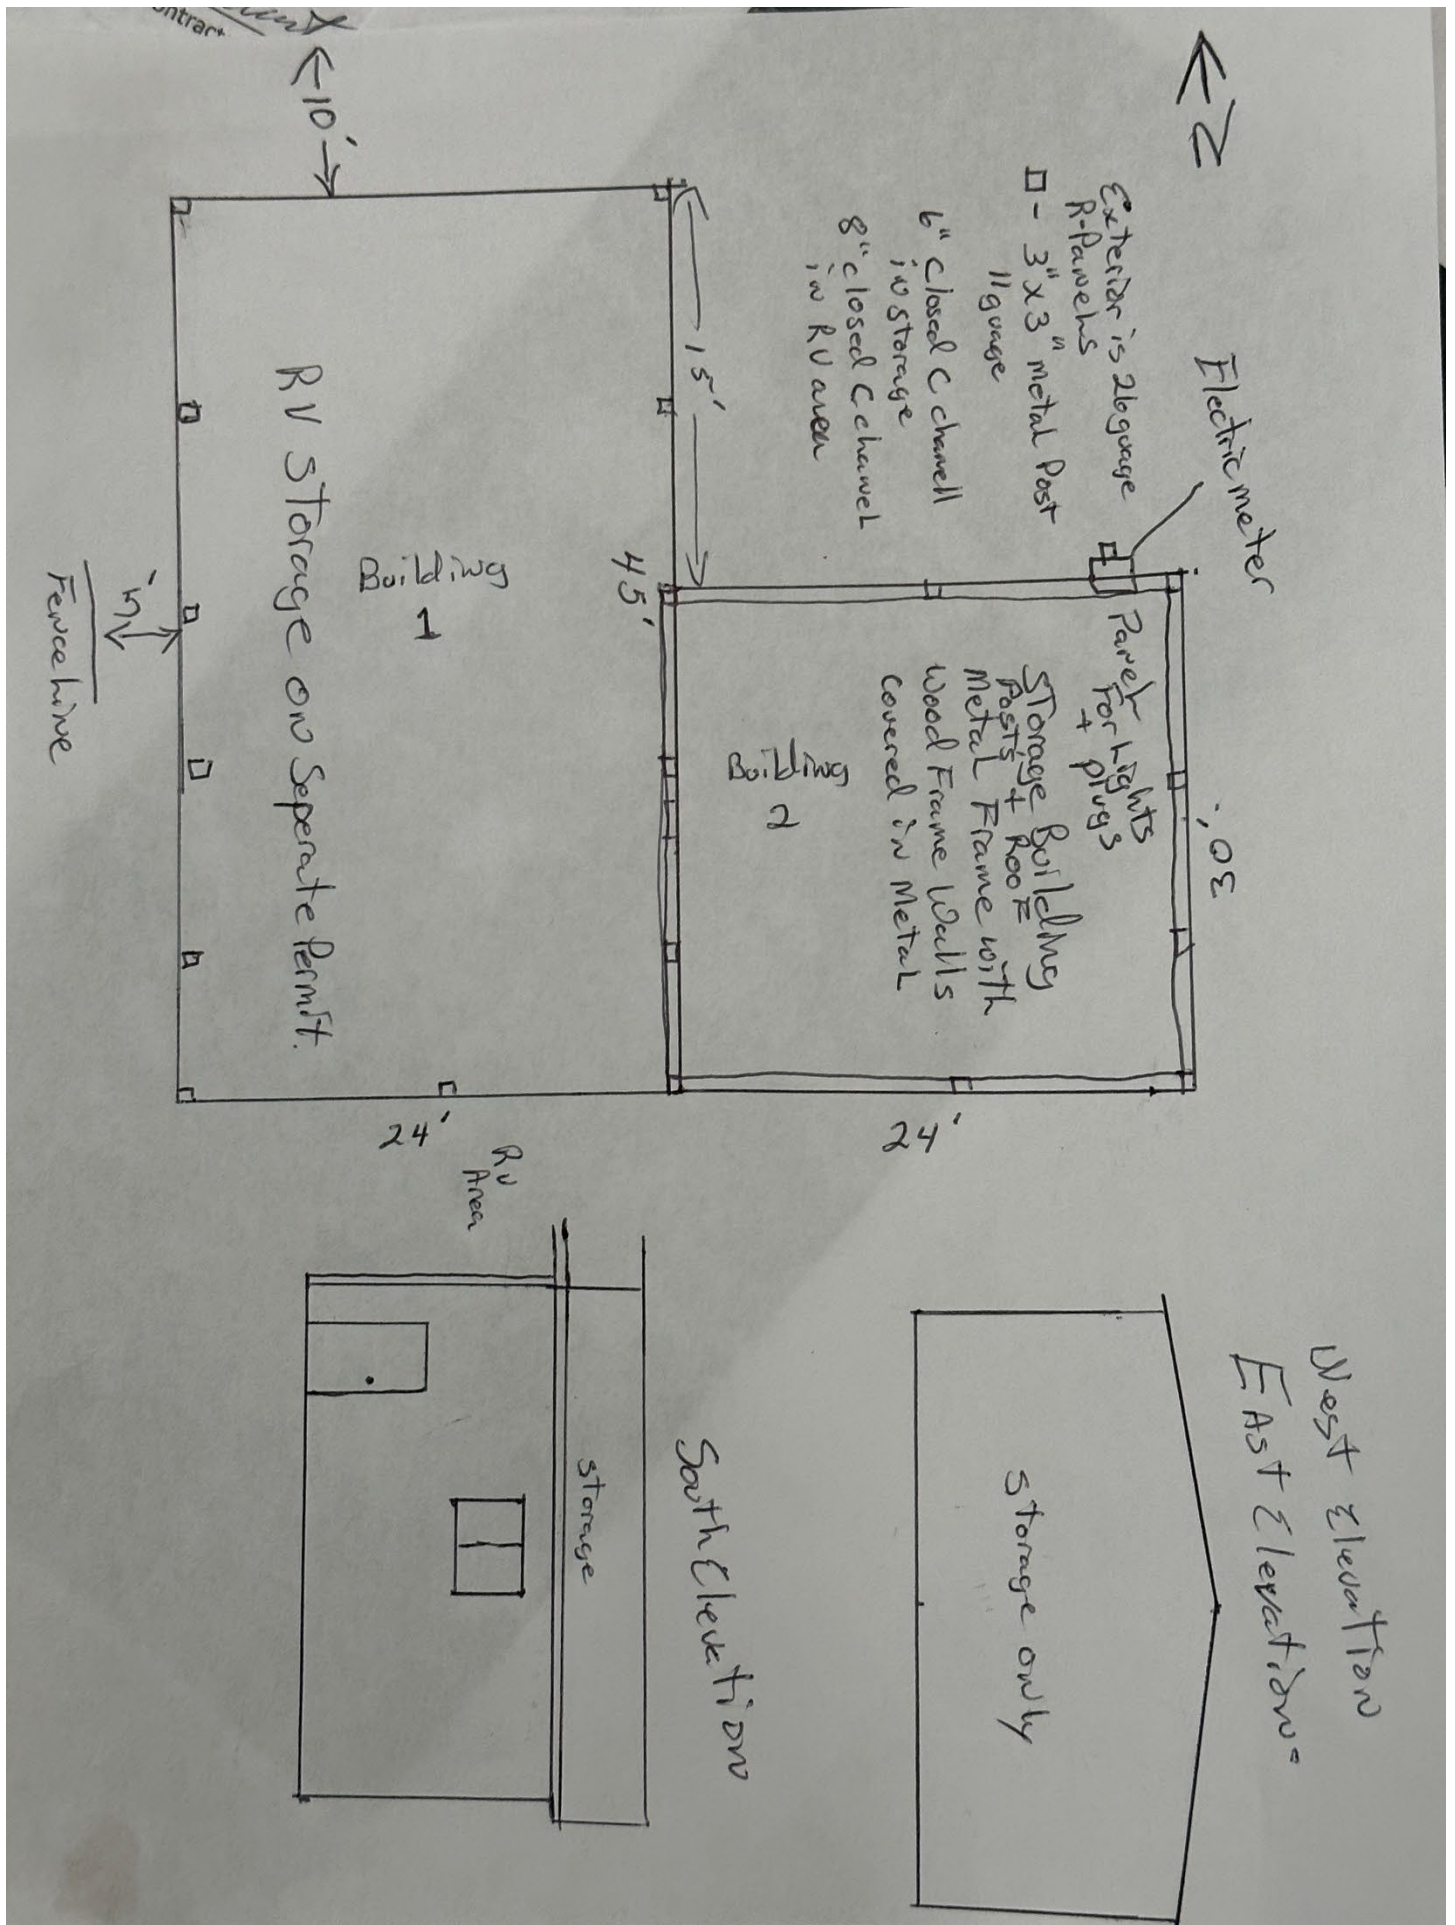 ontrac
N
10'
Electric meter
Exterior is 26 guage
R-Panels
□ - 3" x 3" metal Post
11 guage
6" closed C chanell
in storage
8" closed C channel
in RV area
15'
45'
30'
Panel
For Lights
+ plugs
Storage Building
Posts + Roof
Metal Frame with
Wood Frame Walls
covered in Metal
Building
2
Building
1
RV Storage on Seperate Permit.
5'
Fence line
24'
24'
RV
Area
West Elevation
East Elevation
Storage only
South Elevation
Storage